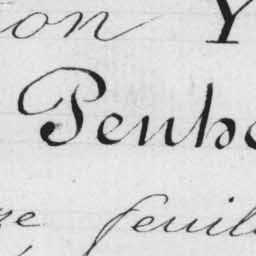 on Y
Penho
ze feuill